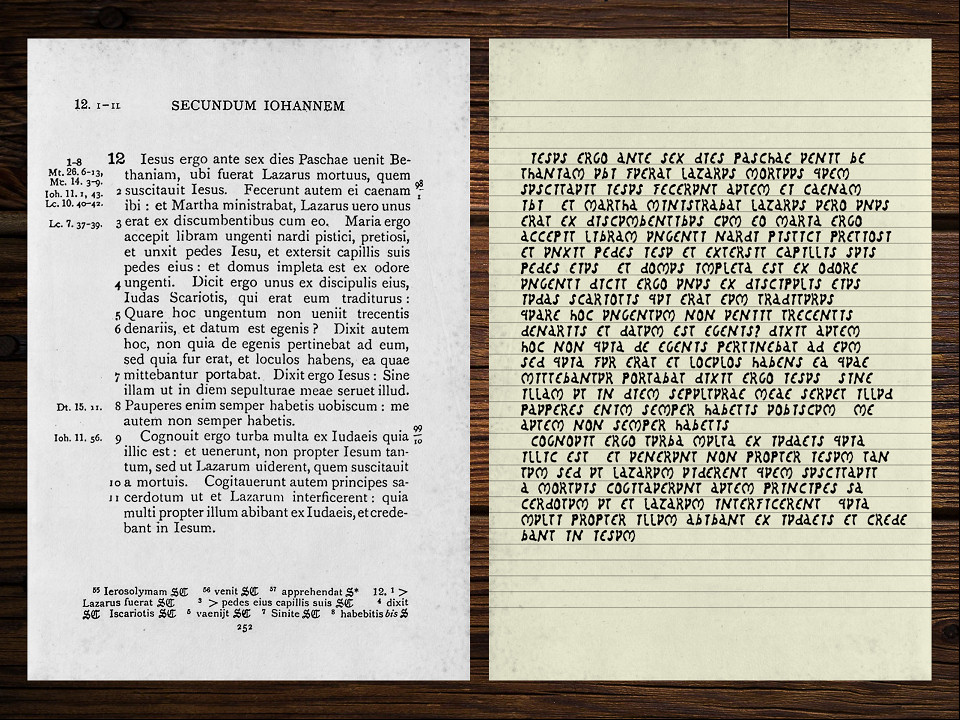 12. 1–11 SECUNDUM IOHANNEM
1–8 12 Iesus ergo ante sex dies Paschae uenit Be-
Mt. 26. 6–13, thaniam, ubi fuerat Lazarus mortuus, quem
Mc. 14. 3–9. 2 suscitauit Iesus. Fecerunt autem ei caenam 98
Ioh. 11. 1, 43. ibi : et Martha ministrabat, Lazarus uero unus 1
Lc. 10. 40–42.
Lc. 7. 37–39. 3 erat ex discumbentibus cum eo. Maria ergo
accepit libram ungenti nardi pistici, pretiosi,
et unxit pedes Iesu, et extersit capillis suis
pedes eius : et domus impleta est ex odore
4 ungenti. Dicit ergo unus ex discipulis eius,
Iudas Scariotis, qui erat eum traditurus :
5 Quare hoc ungentum non ueniit trecentis
6 denariis, et datum est egenis ? Dixit autem
hoc, non quia de egenis pertinebat ad eum,
sed quia fur erat, et loculos habens, ea quae
7 mittebantur portabat. Dixit ergo Iesus : Sine
illam ut in diem sepulturae meae seruet illud.
Dt. 15. 11. 8 Pauperes enim semper habetis uobiscum : me
autem non semper habetis.
Ioh. 11. 56. 9 Cognouit ergo turba multa ex Iudaeis quia 99
illic est : et uenerunt, non propter Iesum tan- 10
tum, sed ut Lazarum uiderent, quem suscitauit
10 a mortuis. Cogitauerunt autem principes sa-
11 cerdotum ut et Lazarum interficerent : quia
multi propter illum abibant ex Iudaeis, et crede-
bant in Iesum.
55 Ierosolymam SC 56 venit SC 57 apprehendat S* 12. 1 >
Lazarus fuerat SC 3 > pedes eius capillis suis SC 4 dixit
SC Iscariotis SC 5 vaenijt SC 7 Sinite SC 8 habebitis bis S
252
IESVS ERGO ANTE SEX DIES PASCHAE VENIT BE
THANIAM VBI FVERAT LAZARVS MORTVVS QVEM
SVSCITAVIT IESVS FECERVNT AVTEM EI CAENAM
IBI ET MARTHA MINISTRABAT LAZARVS VERO VNVS
ERAT EX DISCVMBENTIBVS CVM EO MARIA ERGO
ACCEPIT LIBRAM VNGENTI NARDI PISTICI PRETIOSI
ET VNXIT PEDES IESV ET EXTERSIT CAPILLIS SVIS
PEDES EIVS ET DOMVS IMPLETA EST EX ODORE
VNGENTI DICIT ERGO VNVS EX DISCIPVLIS EIVS
IVDAS SCARIOTIS QVI ERAT EVM TRADITVRVS
QVARE HOC VNGENTVM NON VENIIT TRECENTIS
DENARIIS ET DATVM EST EGENIS? DIXIT AVTEM
HOC NON QVIA DE EGENIS PERTINEBAT AD EVM
SED QVIA FVR ERAT ET LOCVLOS HABENS EA QVAE
MITTEBANTVR PORTABAT DIXIT ERGO IESVS SINE
ILLAM VT IN DIEM SEPVLTVRAE MEAE SERVET ILLVD
PAVPERES ENIM SEMPER HABETIS VOBISCVM ME
AVTEM NON SEMPER HABETIS
COGNOVIT ERGO TVRBA MVLTA EX IVDAEIS QVIA
ILLIC EST ET VENERVNT NON PROPTER IESVM TAN
TVM SED VT LAZARVM VIDERENT QVEM SVSCITAVIT
A MORTVIS COGITAVERVNT AVTEM PRINCIPES SA
CERDOTVM VT ET LAZARVM INTERFICERENT QVIA
MVLTI PROPTER ILLVM ABIBANT EX IVDAEIS ET CREDE
BANT IN IESVM